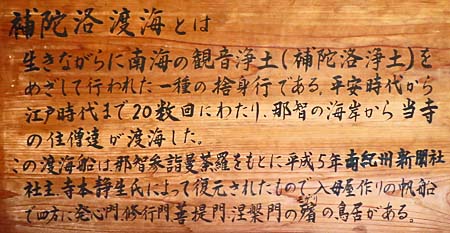 補陀洛渡海とは
生きながらに南海の観音浄土(補陀洛浄土)を
めざして行われた一種の捨身行である。平安時代から
江戸時代まで20数回にわたり、那智の海岸から当寺
の住僧達が渡海した。
この渡海船は、那智参詣曼荼羅をもとに平成5年南紀州新聞社
社主、寺本静生氏によって復元されたもので、入母屋作りの帆船
で四方に発心門、修行門、菩提門、涅槃門の殯の鳥居がある。